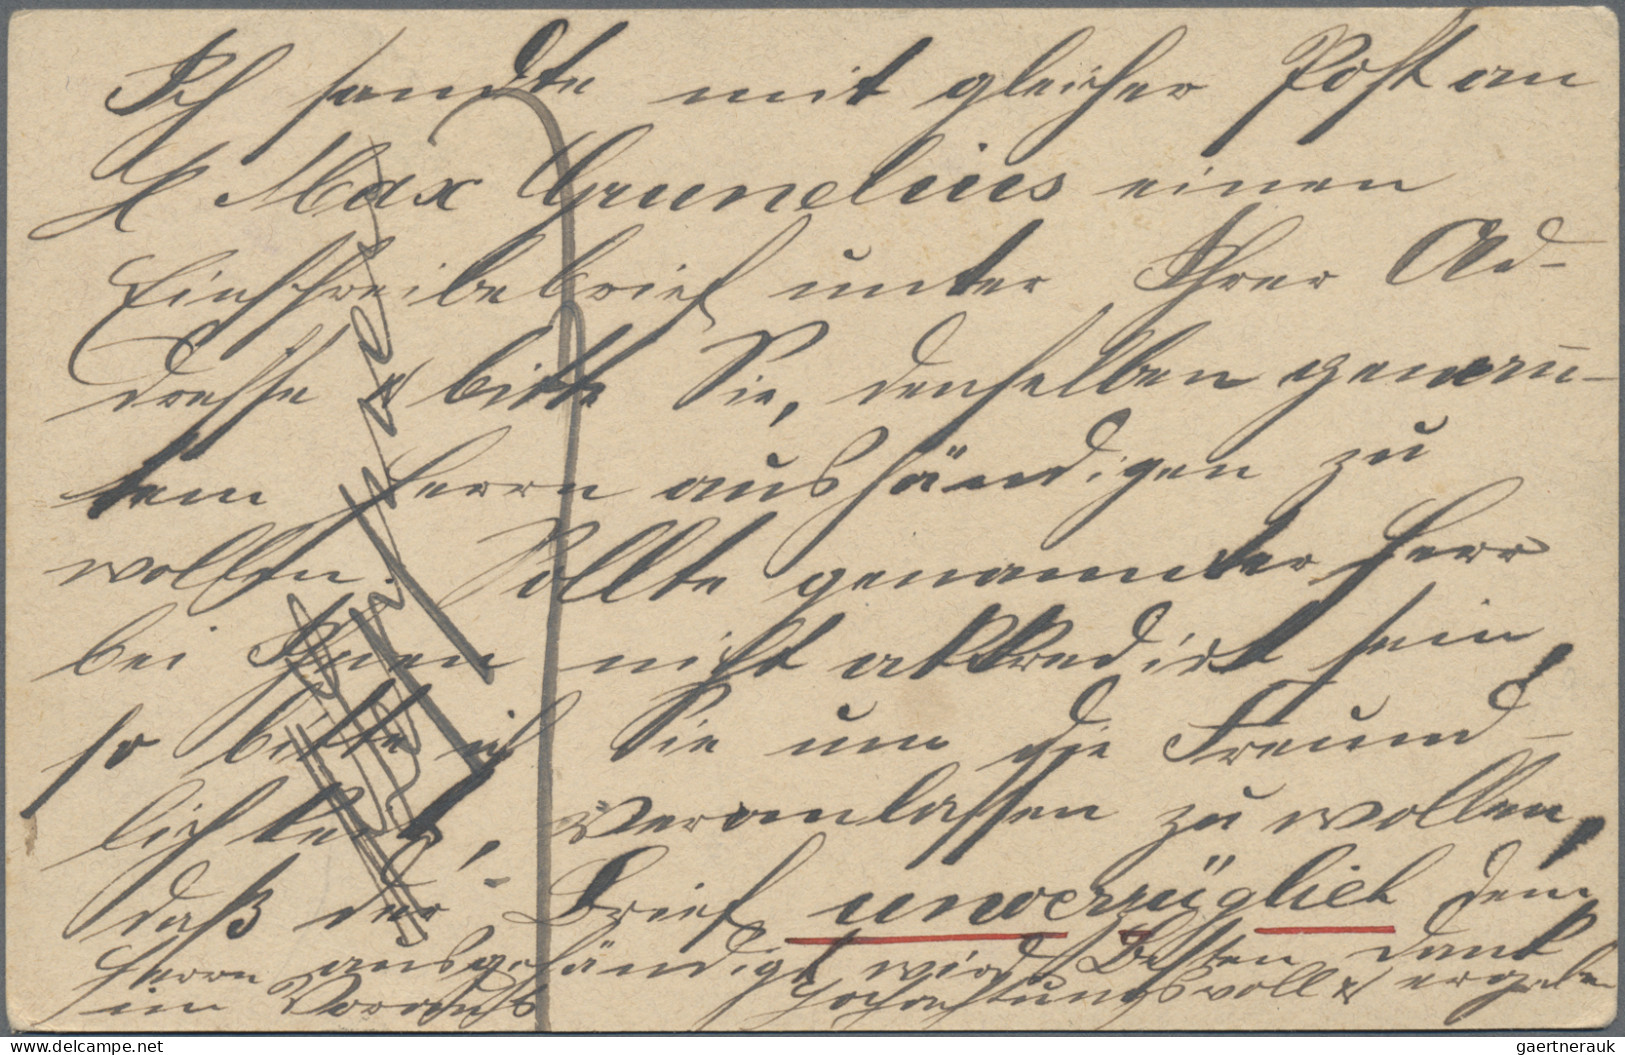 Ich sandte mit gleicher Post an
H Max Grunelius einen
Einschreibebrief unter Ihrer Ad-
dresse & bitte Sie, denselben genann-
tem Herrn aushändigen zu
wollen. Sollte genannter Herr
bei Ihnen nicht akkredirt sein,
so bitte ich Sie um die Freund-
lichkeit, veranlassen zu wollen,
daß der Brief unverzüglich dem
Herrn ausgehändigt wird. Besten Dank
im Voraus Hochachtungsvoll & ergeben
www.delcampe.net
gaertnerauk